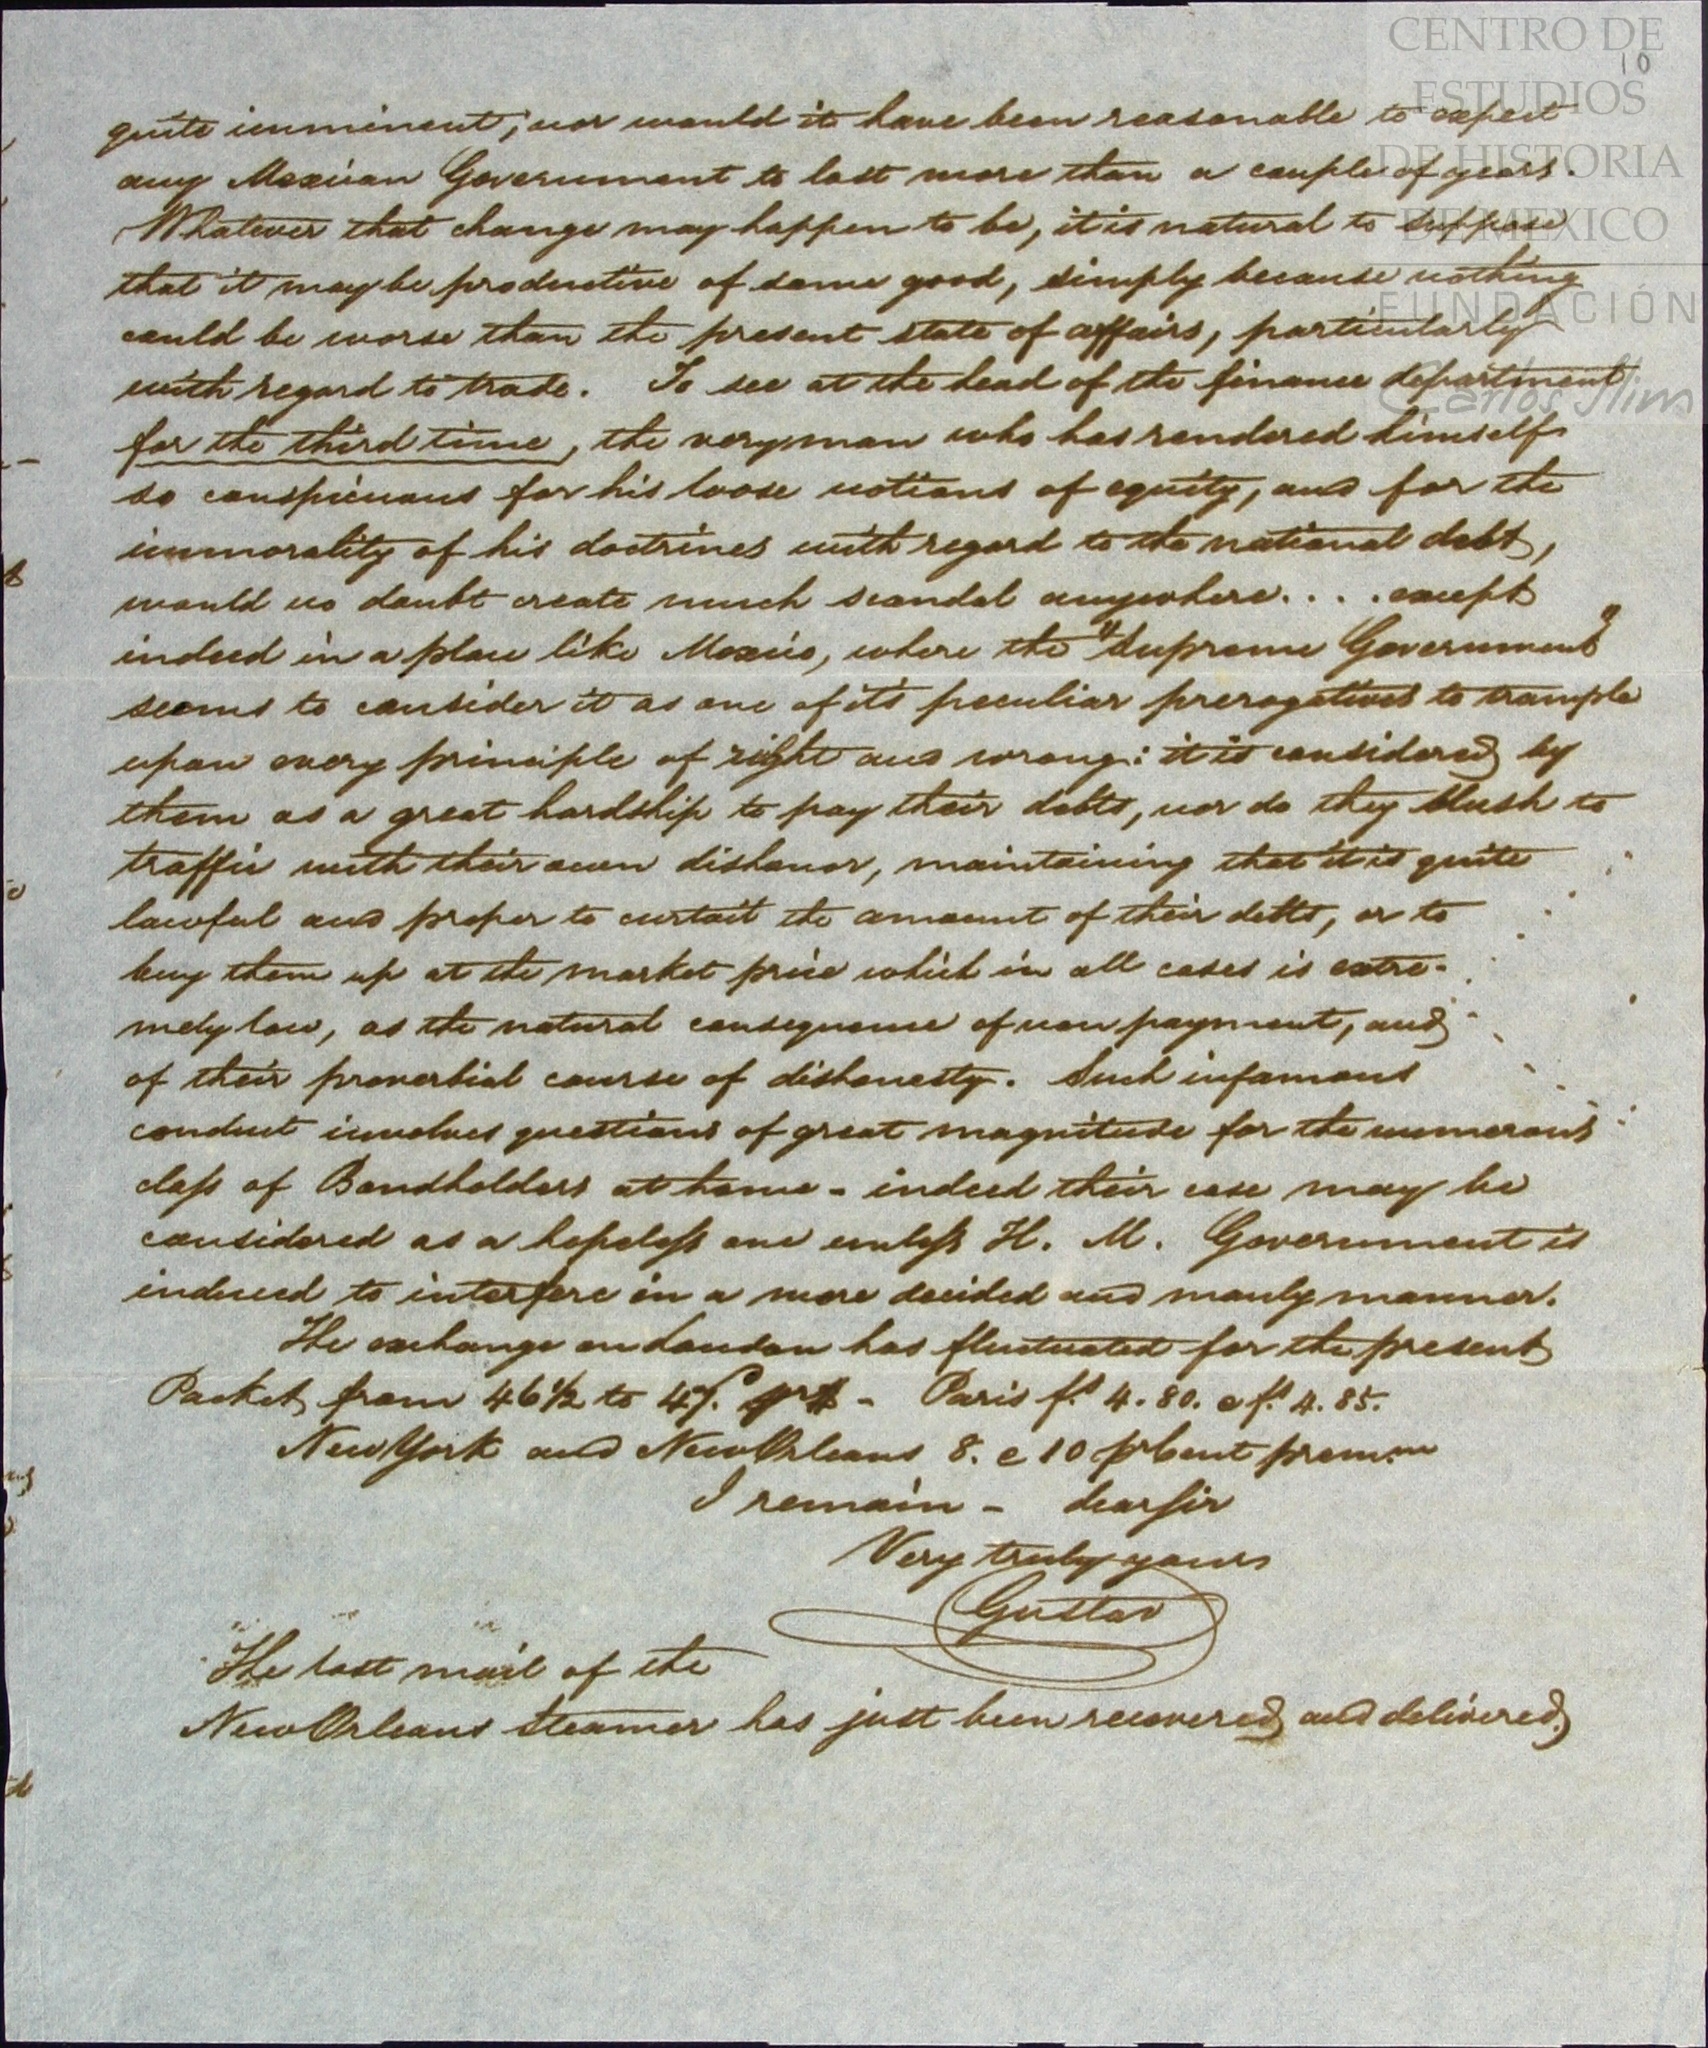 CENTRO DE
ESTUDIOS
DE HISTORIA
DE MEXICO
FUNDACIÓN
Carlos Slim
10
quite imminent; nor would it have been reasonable to expect
any Mexican Government to last more than a couple of years.
Whatever that change may happen to be, it is natural to suppose
that it may be productive of some good, simply because nothing
could be worse than the present state of affairs, particularly
with regard to trade. To see at the head of the finance department
for the third time, the very man who has rendered himself
so conspicuous for his loose notions of equity, and for the
immorality of his doctrines with regard to the national debt,
would no doubt create much scandal anywhere. . . . except
indeed in a place like Mexico, where the "Supreme Government"
seems to consider it as one of it's peculiar prerogatives to trample
upon every principle of right and wrong: it is considered by
them as a great hardship to pay their debts, nor do they blush to
traffic with their own dishonor, maintaining that it is quite
lawful and proper to curtail the amount of their debts, or to
buy them up at the market price which in all cases is extre-
mely low, as the natural consequence of non payment, and
of their proverbial course of dishonesty. Such infamous
conduct involves questions of great magnitude for the numerous
class of Bondholders at home - indeed their case may be
considered as a hopeless one unless H. M. Government is
induced to interfere in a more decided and manly manner.
The exchange on London has fluctuated for the present
Packet from 46 1/2 to 47. pr $ - Paris fs. 4.80. @ fs. 4.85.
New York and New Orleans 8. @ 10 pr Cent prem.m
I remain - dear Sir
Very truly yours
Gustav
The last mail of the
New Orleans Steamer has just been recovered and delivered.